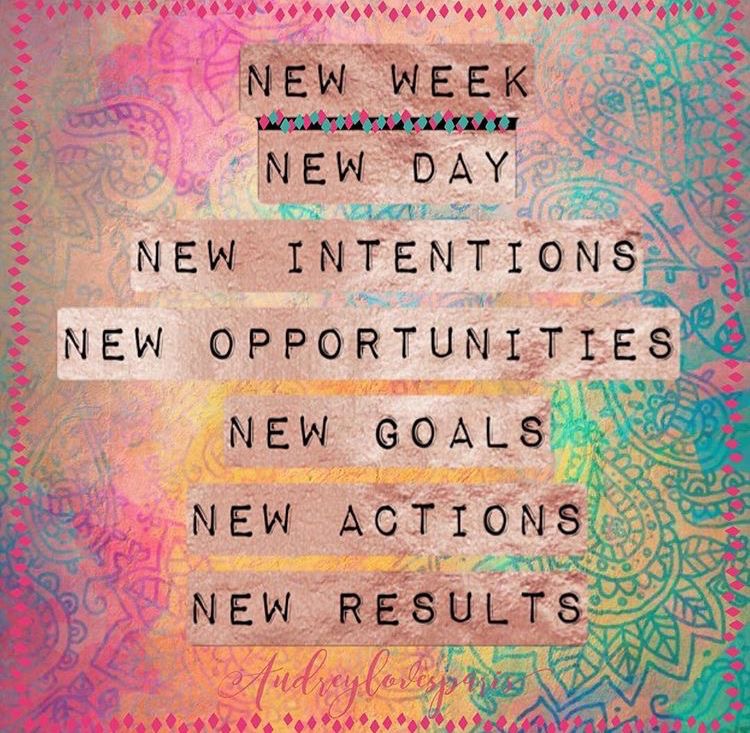 NEW WEEK
NEW DAY
NEW INTENTIONS
NEW OPPORTUNITIES
NEW GOALS
NEW ACTIONS
NEW RESULTS
Audreylovesparis